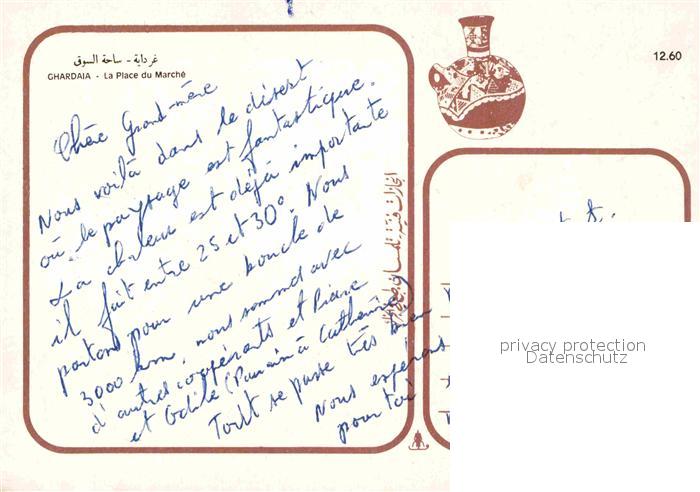 غرداية - ساحة السوق
GHARDAIA - La Place du Marché
12.60
Chère Grand-mère
Nous voilà dans le désert
où le paysage est fantastique.
La chaleur est déjà importante
il fait entre 25 et 30°. Nous
partons pour une boucle de
3000 km, nous sommes avec
d'autres coopérants et Pierre
et Odile (Parrain à Catherine)
Tout se passe très bien
Nous espérons
pour toi
privacy protection
Datenschutz